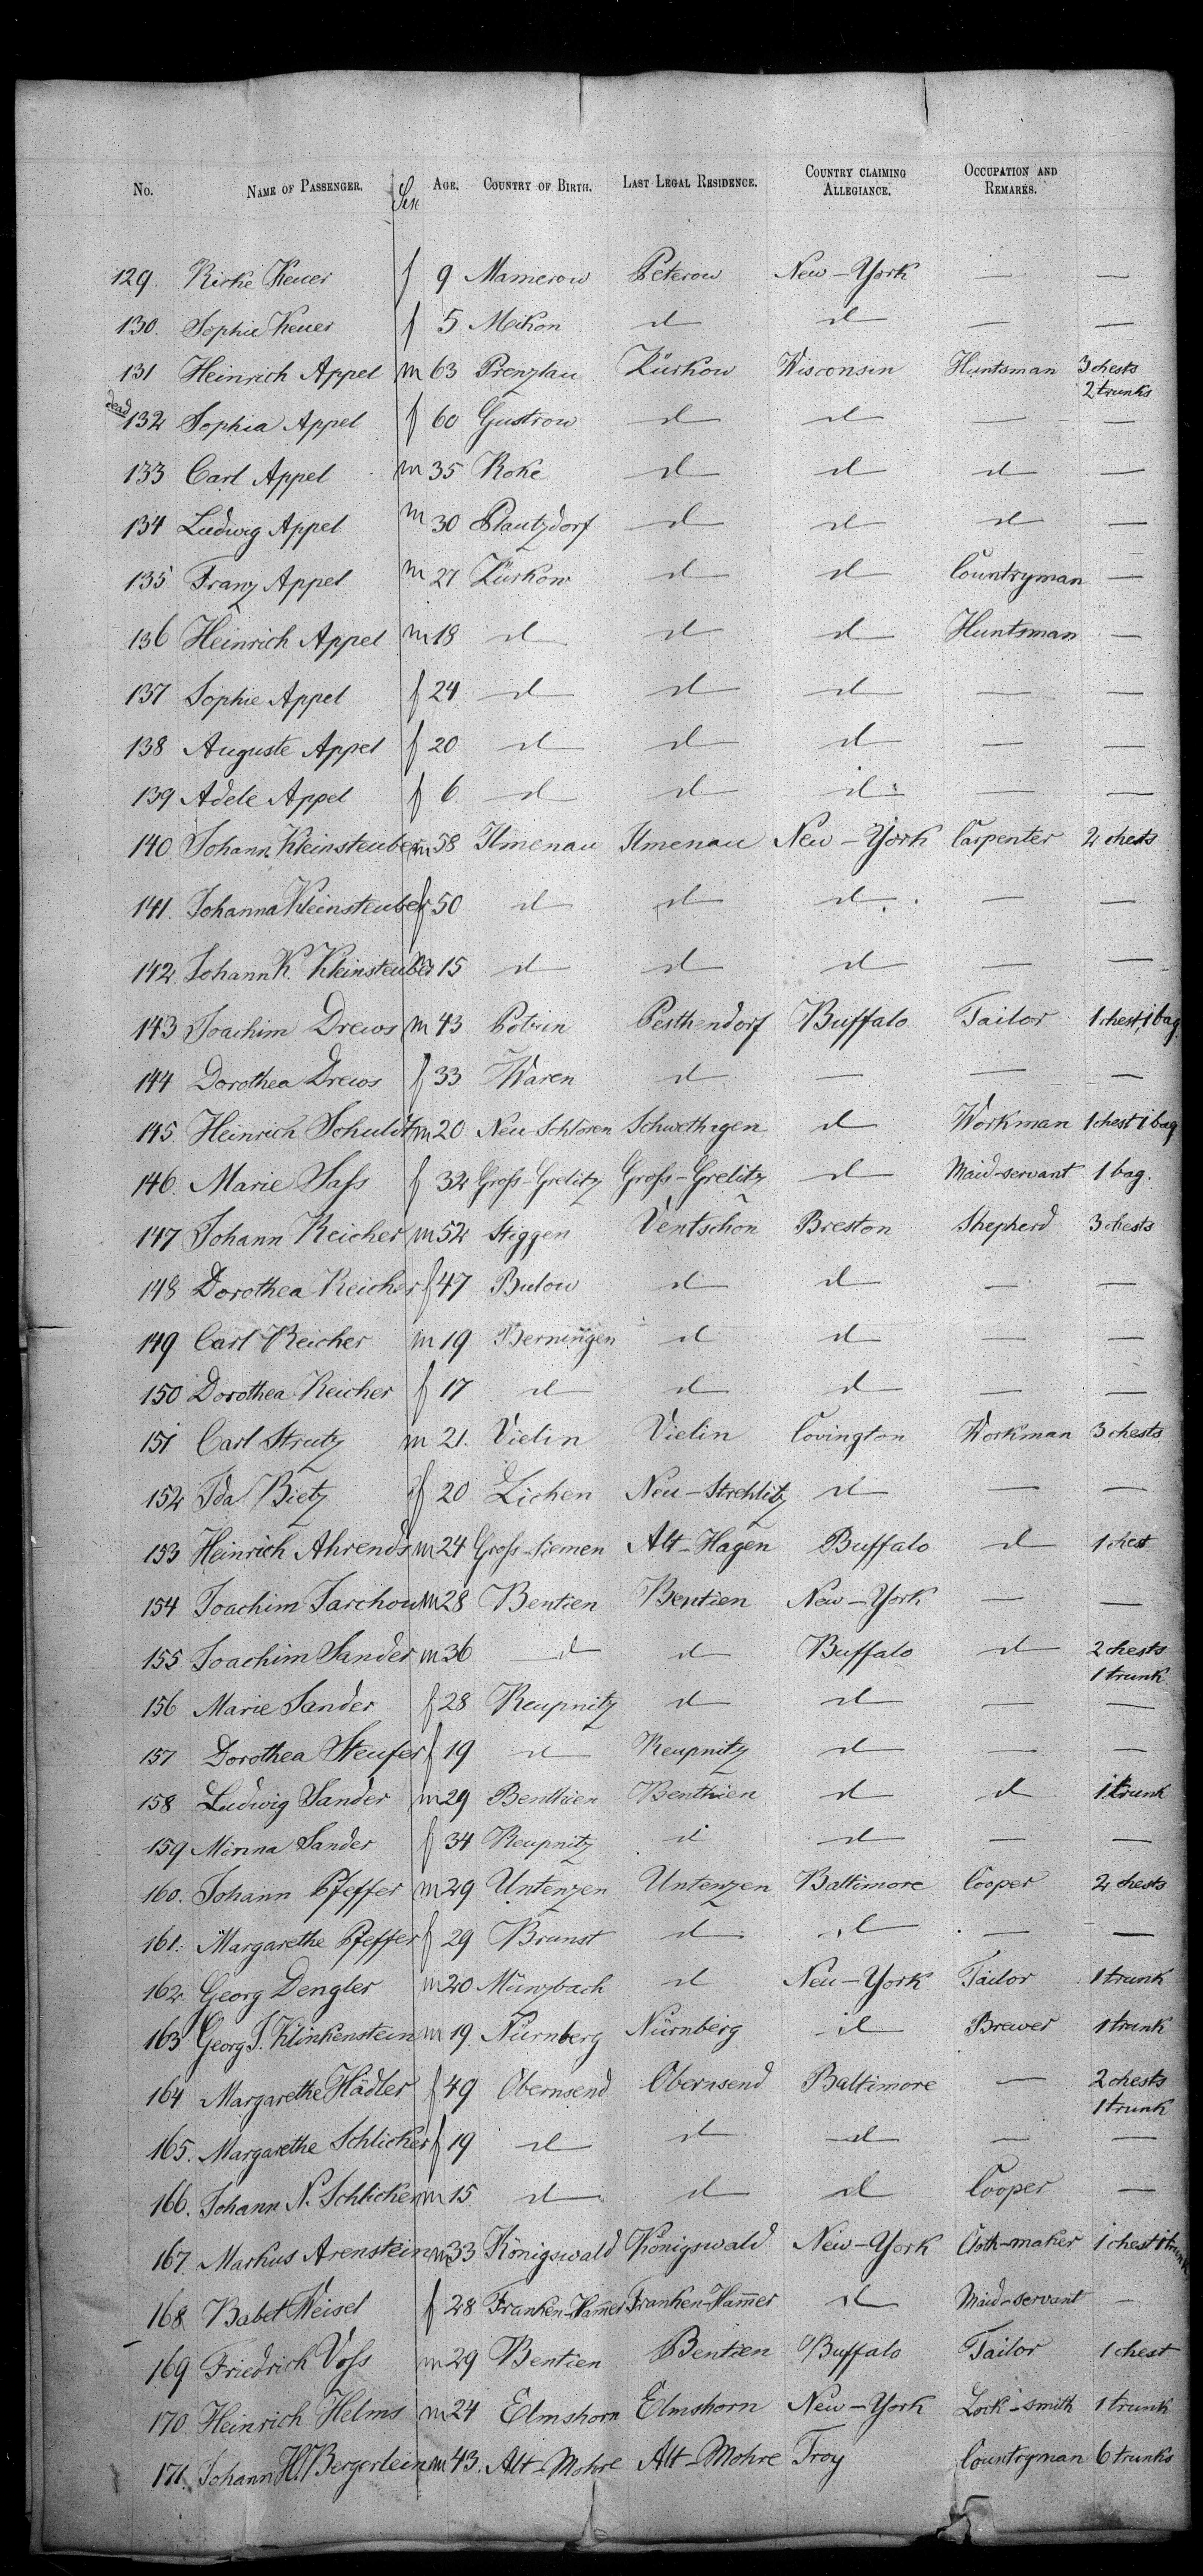 No. NAME OF PASSENGER. Sex AGE. COUNTRY OF BIRTH. LAST LEGAL RESIDENCE. COUNTRY CLAIMING ALLEGIANCE. OCCUPATION AND REMARKS.
129. Rieke Keuer f 9 Mamerow Peterow New-York — —
130. Sophie Keuer f 5 Mekon d d — —
131 Heinrich Appel m 63 Prenzlau Zürkow Wisconsin Huntsman 3 chests
2 trunks
dead 132 Sophia Appel f 60 Gustrow d d — —
133 Carl Appel m 35 Roke d d d —
134 Ludwig Appel m 30 Plautzdorf d d d —
135 Franz Appel m 27 Zürkow d d Countryman —
136 Heinrich Appel m 18 d d d Huntsman —
137 Sophie Appel f 24 d d d — —
138 Auguste Appel f 20 d d d — —
139 Adele Appel f 6 d d d — —
140 Johann Kleinsteuber m 58 Ilmenau Ilmenau New-York Carpenter 2 chests
141. Johanna Kleinsteuber f 50 d d d — —
142. Johann K. Kleinsteuber m 15 d d d — —
143 Joachim Drews m 43 Pesthendorf Buffalo Tailor 1 chest, 1 bag.
144 Dorothea Drews f 33 Waren d — — —
145 Heinrich Schuldt m 20 Neu-Schlören Schwethagen d Workman 1 chest 1 bag
146. Marie Sass f 32 Gross-Grelitz Gross-Grelitz d Maid-servant 1 bag.
147 Johann Reicher m 52 Stiggen Ventschön Breston Shepherd 3 chests
148 Dorothea Reicher f 47 Bulow d d — —
149 Carl Reicher m 19 Berningen d d — —
150 Dorothea Reicher f 17 d d d — —
151 Carl Strutz m 21. Vielin Vielin Covington Workman 3 chests
152 Ida Bietz f 20 Lichen Neu-Strehlitz d — —
153 Heinrich Ahrends m 24 Gross-Siemen Alt-Hagen Buffalo d 1 chest
154 Joachim Jarchow m 28 Bentien Bentien New-York — —
155 Joachim Sander m 36 d d Buffalo d 2 chests
1 trunk
156 Marie Sander f 28 Reupnitz d d — —
157 Dorothea Steufer f 19 d Reupnitz d — —
158 Ludwig Sander m 29 Benthien Benthien d d 1 trunk
159 Minna Sander f 34 Reupnitz d d — —
160. Johann Pfeffer m 29 Untenzen Untenzen Baltimore Cooper 2 chests
161. Margarethe Pfeffer f 29 Brunst d d — —
162. Georg Dengler m 20 Münzbach d New-York Tailor 1 trunk
163 Georg J. Klinkenstein m 19 Nürnberg Nürnberg d Brewer 1 trunk
164 Margarethe Hädler f 49 Obernsend Obernsend Baltimore — 2 chests
1 trunk
165. Margarethe Schlicker f 19 d d d — —
166. Johann N. Schlicker m 15 d d d Cooper —
167. Markus Arenstein m 33 Königswald Königswald New-York 1 chest 1 trunk
168 Babet Weisel f 28 Franken-Hammer Franken-Hammer d Maid-servant —
169 Friedrich Voss m 29 Bentien Bentien Buffalo Tailor 1 chest
170 Heinrich Helms m 24 Elmshorn Elmshorn New-York Lock-smith 1 trunk
171. Johann H. Bergerlein m 43. Alt-Mohre Alt-Mohre Troy Countryman 6 trunks